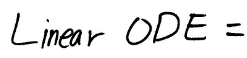 Linear ODE =